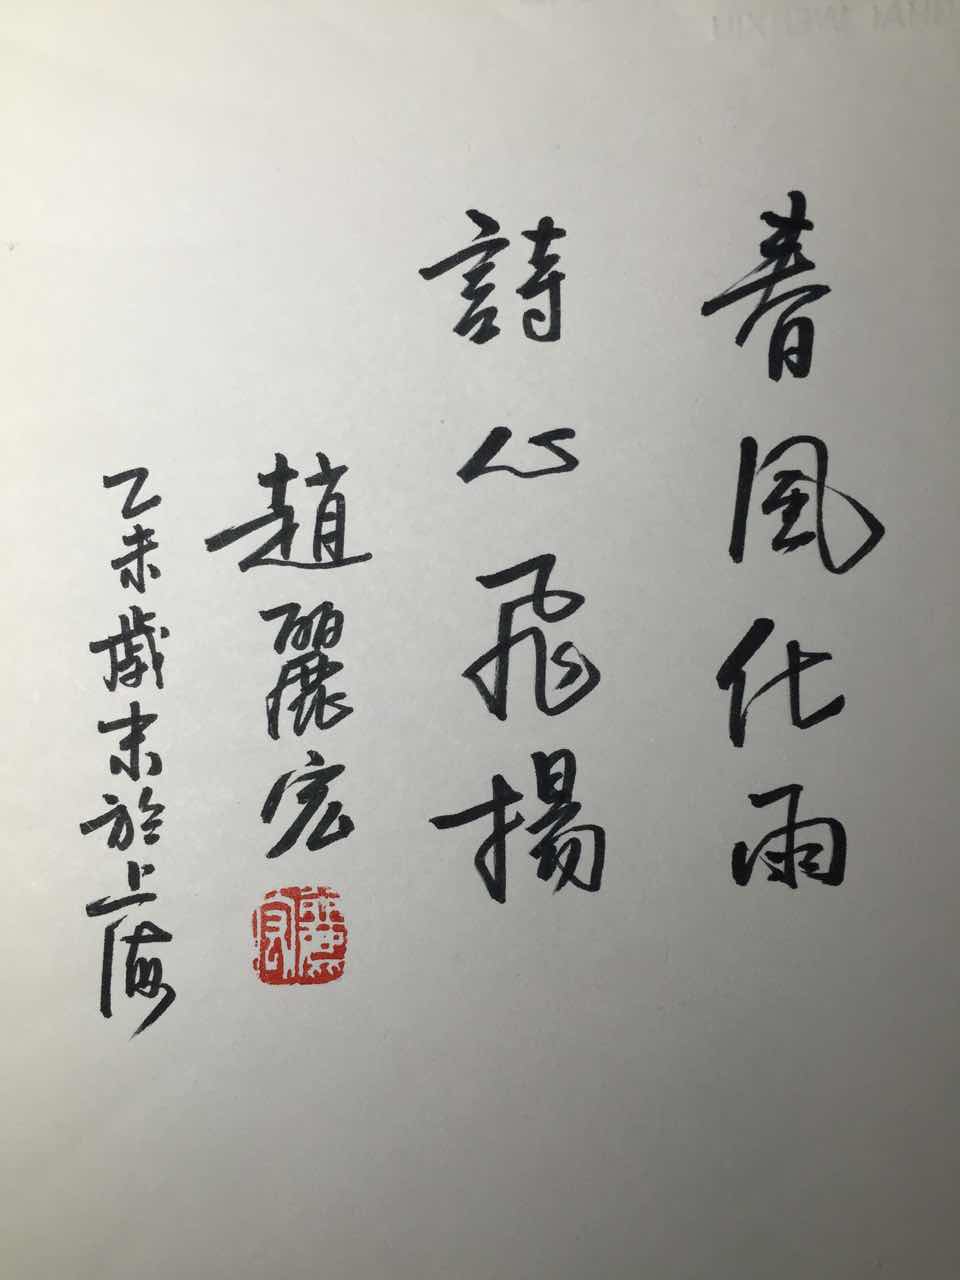 春風化雨
詩心飛揚
趙麗宏
麗宏
乙未歲末於上海